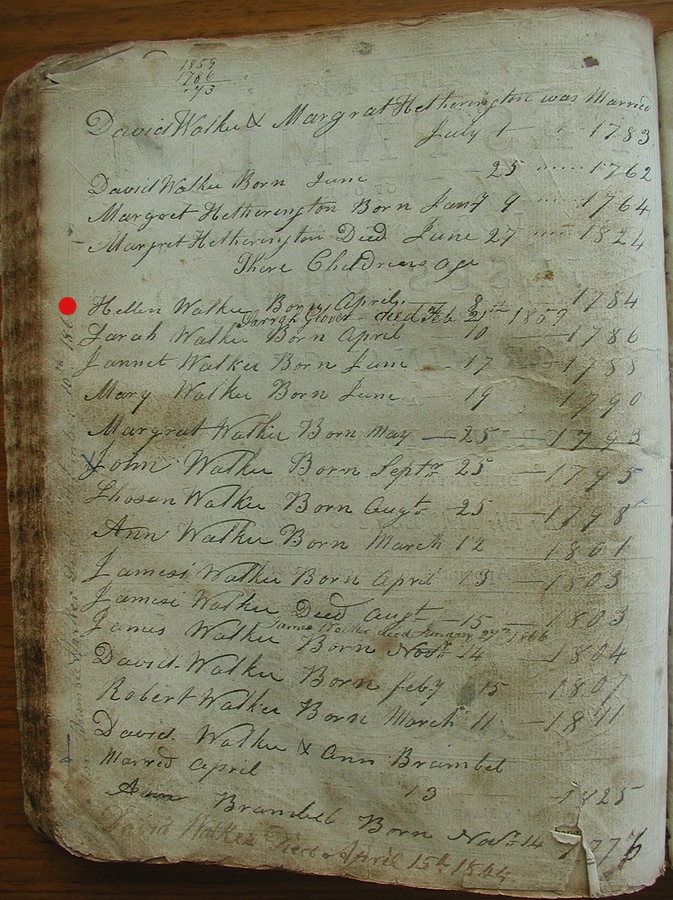 1859
1786
73
David Walker & Margrat Hetherington was Married
July 1 1783
David Walker Born June 25 1762
Margret Hetherington Born Jany 9 1764
Margret Hetherington Died June 27 1824
There Childrens age
Hellen Walker Born April 8 1784
Sarrah Glover died Feb 21st 1859
Sarah Walker Born April 10 1786
Jannet Walker Born June 17 1788
Mary Walker Born June 19 1790
Margrat Walker Born May 25 1793
John Walker Born Septr 25 1795
Walker Born Augt 25 1798
Ann Walker Born March 12 1801
James Walker Born April 13 1803
Jamese Walker Deed Augt 15 1803
James Walker died January 27th 1866
James Walker Born Novr 14 1804
David Walker Born feby 15 1807
Robert Walker Born March 11 1811
David Walker & Ann Brambel
Marred April 13 1825
Ann Brambel Born Novr 14 177
David Walker Died April 15th 1864